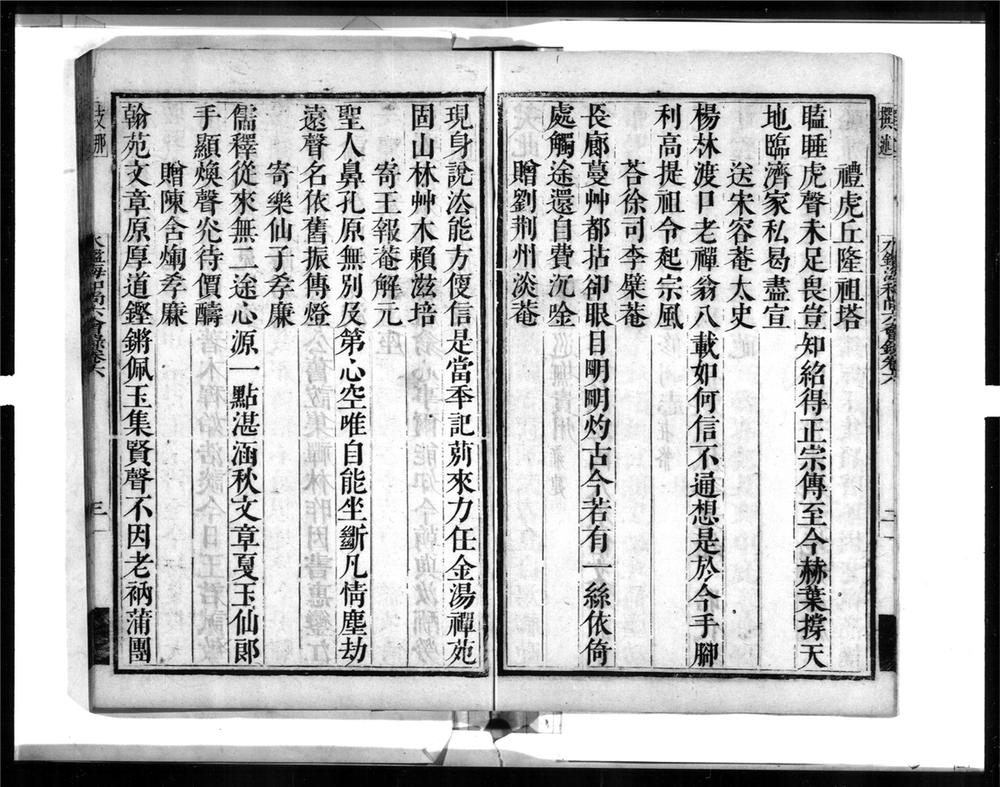 禮虎丘隆祖塔
瞌睡虎聲未足畏豈知紹得正宗傳至今赫葉撐天
地臨濟家私曷盡宣
送宋容菴太史
楊林渡口老禪翁八載如何信不通想是於今手腳
利高提祖令起宗風
荅徐司李檗菴
長廊蔓艸都拈卻眼目明明灼古今若有一絲依倚
處觸途還自費沉唫
贈劉荆州淡菴
現身說法能方便信是當年記莂來力任金湯禪苑
固山林艸木賴滋培
寄王報菴解元
聖人鼻孔原無別及第心空唯自能坐斷凡情塵劫
遠聲名依舊振傳燈
寄樂仙子孝廉
儒釋從來無二途心源一點湛涵秋文章戛玉仙郎
手顯煥聲光待價醻
贈陳舍烱孝廉
翰苑文章原厚道鏗鏘佩玉集賢聲不因老衲蒲團
撰述
二
支那
三